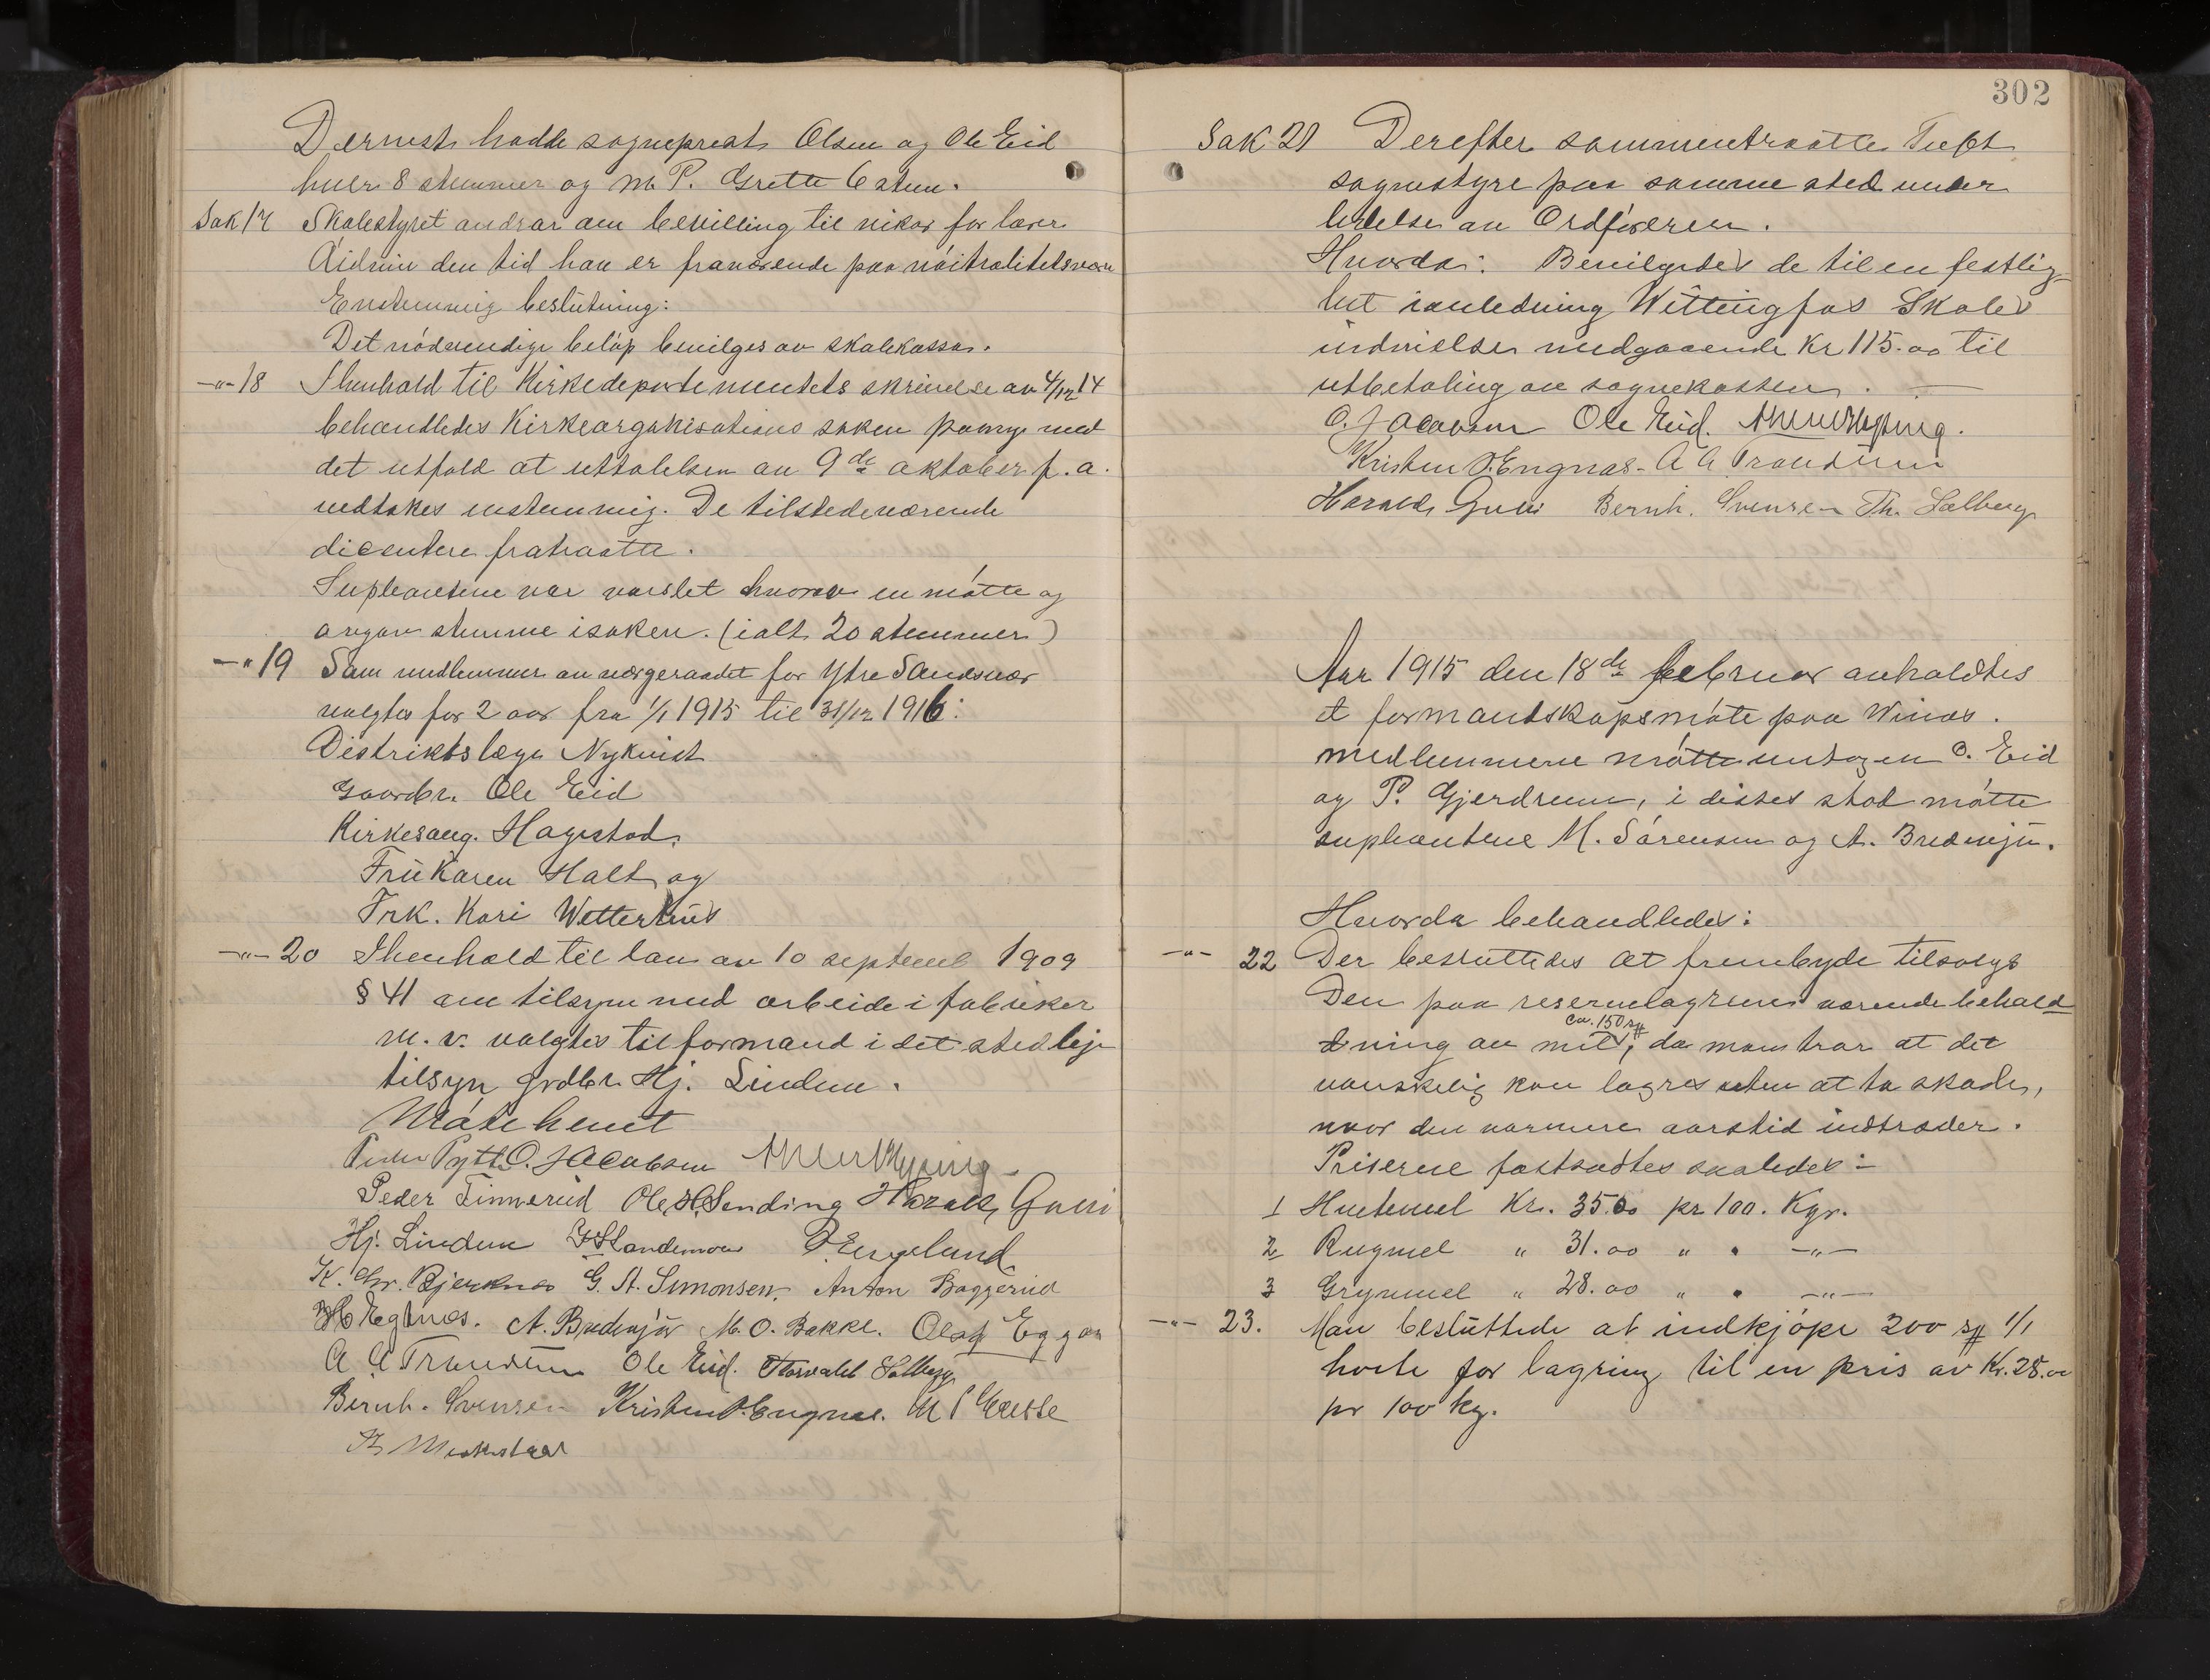 Dernest hadde sogneprest Olsen og Ole Eid
hver 8 stemmer og M. P. Grette 6 stem.
Sak 17 Skolestyret andrar om bevilling til vikar for lærer
den tid han er fraværende paa nöitralitetsvern
Enstemmig beslutning:
Det nödvendige belöp bevilges av skolekassen.
-"- 18 I henhold til Kirkedepartementets skrivelse av 4/12 14
behandledes Kirkeorganisations saken paany med
det utfald at uttalelsen av 9de oktober f. a.
vedtokes enstemmig. De tilstedeværende
dicentere fratraatte.
Supleantene var varslet hvorav en mötte og
avgav stemme i saken. (ialt 20 stemmer)
-"- 19 Som medlemmer av værgeraadet for Ytre Sandsvær
valgtes for 2 aar fra 1/1 1915 til 31/12 1916:
Distriktslæge Nykvist
Gaardbr. Ole Eid
Kirkesang. Hagestad,
Fru Karen Holt og
Frk. Kari Wetterhus
-"- 20 I henhold til lov av 10 septemb 1909
§ 41 om tilsyn med arbeide i fabriker
m. v. valgtes til formand i det stedlige
tilsyn grdbr. Hj. Lindem.
Möte hevet
O. Jacobsen
Peder Tinnerud Ole H. Sending Harald Gunni
Hj. Lindem P. Engelund
K. Chr. Bjerknes G. A. Simonsen, Anton Baggerud
A. Bredvejör M. O. Bakke. Olaf Eggar
A A Trandum Ole Eid. Torvald Solberg
Bernh. Svensen Kristen P. Engnæs. M P Grette
302
Sak 21 Derefter sammentraatte Tuft
sognestyre paa samme sted under
ledelse av Ordföreren.
Hvorda: Bevilgedes de til en festlig-
het i anledning Wittingfos Skoles
indvielse medgaaende Kr 115.00 til
utbetaling av sognekassen. —
O. Jacobsen Ole Eid.
Kristen P. Engnæs - A A Trandum
Harald Gunni Bernh. Svensen Th. Solberg
Aar 1915 den 18de februar avholdtes
et formandskapsmöte paa Winæs.
medlemmerne mötte untagen O. Eid
og P. Gjerdrum, i disses sted mötte
supleantene M. Sörensen og A. Bredvejör.
Hvorda behandledes:
-"- 22 Der besluttedes at frembyde tilsalgs
Den paa reservelagrene værende behold
dning av mel, ca. 150 sk da man tror at det
vanskelig kan lagres uten at ta skade,
naar den varmere aarstid indtræder.
Priserne fastsattes saaledes:
1 Hvetemel Kr. 35.00 pr 100. Kgr.
2 Rugmel " 31.00 " " -"-
3 Grynmel " 28.00 " " -"-
-"- 23. Man besluttede at indkjöpe 200 sk 1/1
hvete for lagring til en pris av Kr. 28.00
pr 100 kg.